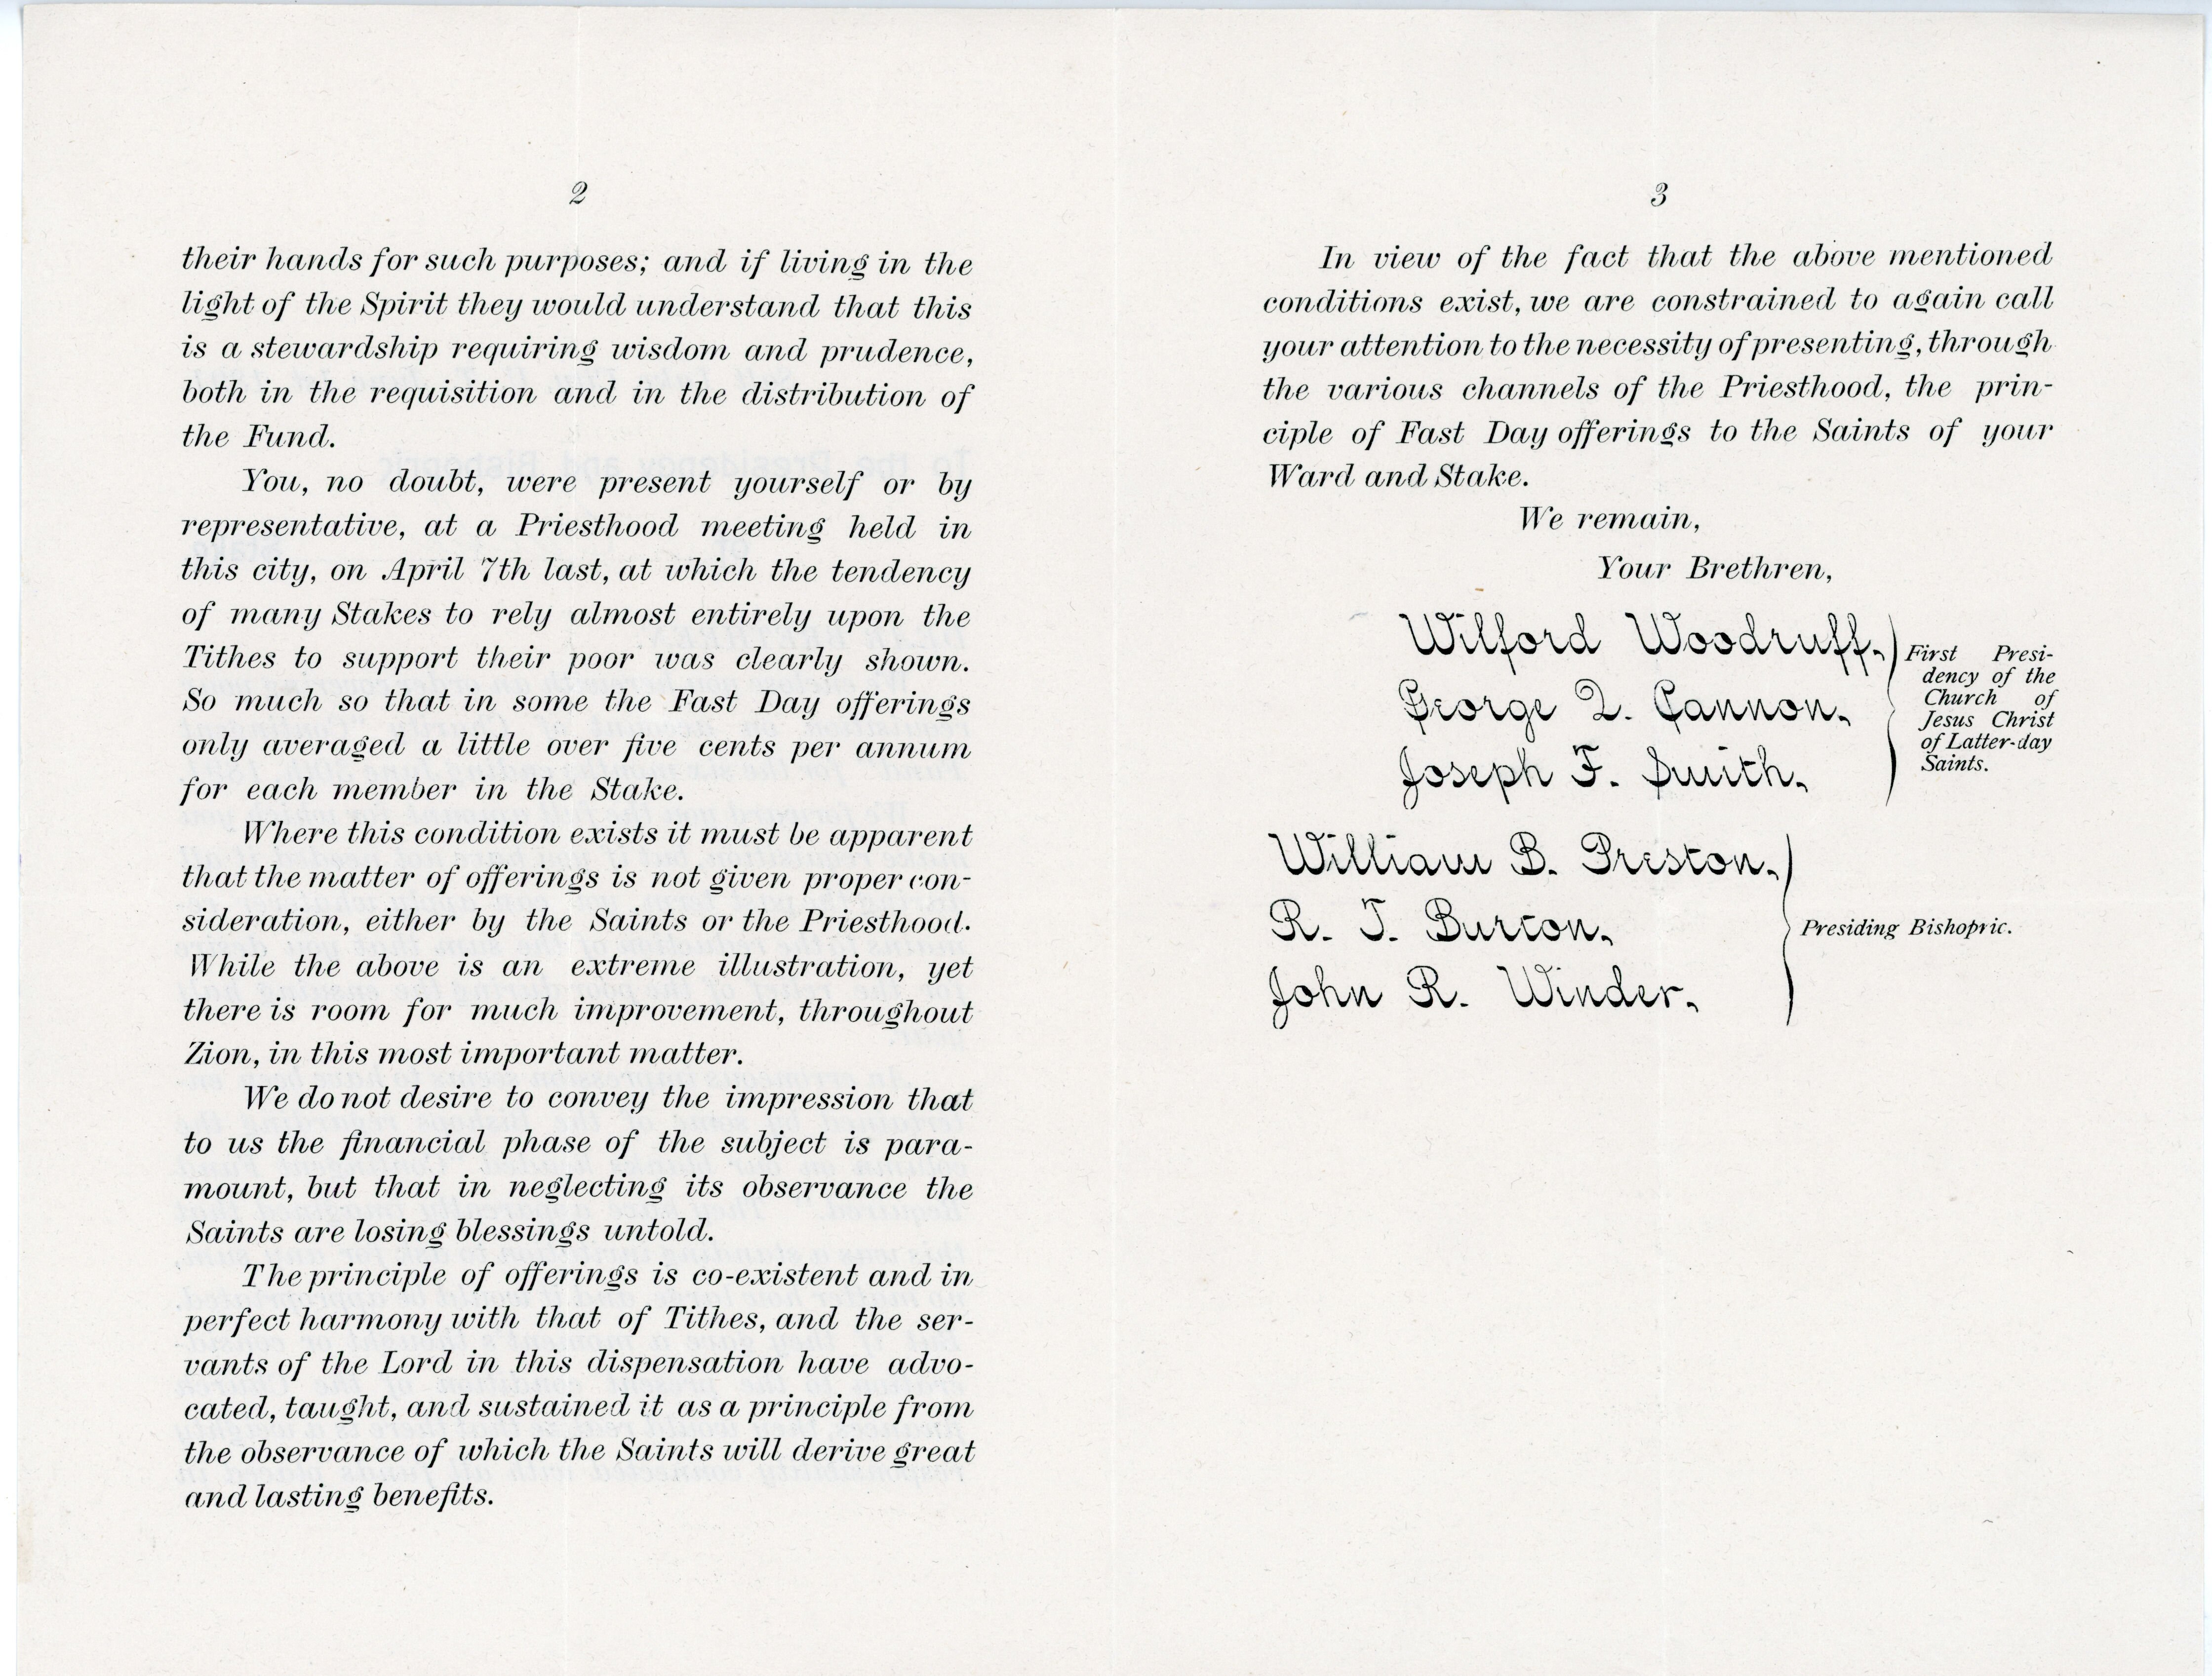 2
their hands for such purposes; and if living in the
light of the Spirit they would understand that this
is a stewardship requiring wisdom and prudence,
both in the requisition and in the distribution of
the Fund.
You, no doubt, were present yourself or by
representative, at a Priesthood meeting held in
this city, on April 7th last, at which the tendency
of many Stakes to rely almost entirely upon the
Tithes to support their poor was clearly shown.
So much so that in some the Fast Day offerings
only averaged a little over five cents per annum
for each member in the Stake.
Where this condition exists it must be apparent
that the matter of offerings is not given proper con-
sideration, either by the Saints or the Priesthood.
While the above is an extreme illustration, yet
there is room for much improvement, throughout
Zion, in this most important matter.
We do not desire to convey the impression that
to us the financial phase of the subject is para-
mount, but that in neglecting its observance the
Saints are losing blessings untold.
The principle of offerings is co-existent and in
perfect harmony with that of Tithes, and the ser-
vants of the Lord in this dispensation have advo-
cated, taught, and sustained it as a principle from
the observance of which the Saints will derive great
and lasting benefits.
3
In view of the fact that the above mentioned
conditions exist, we are constrained to again call
your attention to the necessity of presenting, through
the various channels of the Priesthood, the prin-
ciple of Fast Day offerings to the Saints of your
Ward and Stake.
We remain,
Your Brethren,
Wilford Woodruff,
George Q. Cannon,
Joseph F. Smith,
First Presi-
dency of the
Church of
Jesus Christ
of Latter-day
Saints.
William B. Preston,
R. T. Burton,
John R. Winder,
Presiding Bishopric.